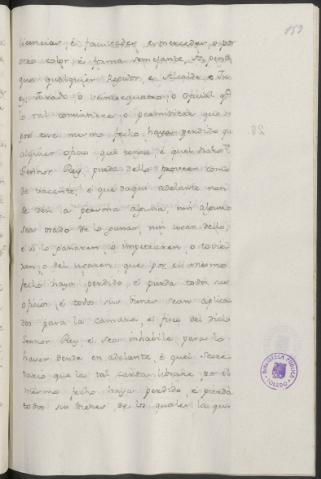 159
licencias, é facultades, e mercedes, o por
otro color, é forma semejante, so pena
que qualquier Regidor, e Alcalde o Ju
rado o veintequatro, o oficial qe
lo tal consintiere o permitiere que
por ese mismo fecho hayan perdido qu
alquier oficio que tengan, é quel dicho
Señor Rey, pueda dello proveer como
de vacante, é que daqui adelante non
se den a persona alguna, nin alguno
sea osado de lo ganar, nin usar dello,
é si lo ganaren, o impetraren, o tovie
ren, o del usaren, que por el mismo
fecho haya perdido, é pierda todos sus
oficios, é todos sus bienes sean aplica
dos para la camara, é fisco del dicho
Señor Rey, e sean inhabiles para lo
haver dende en adelante, é quel Secre
tario que la tal carta librare, por el
mismo fecho haya perdido, e pierda
todos sus bienes, de los quales la qui
BIBLIOTECA PUBLICA
TOLEDO